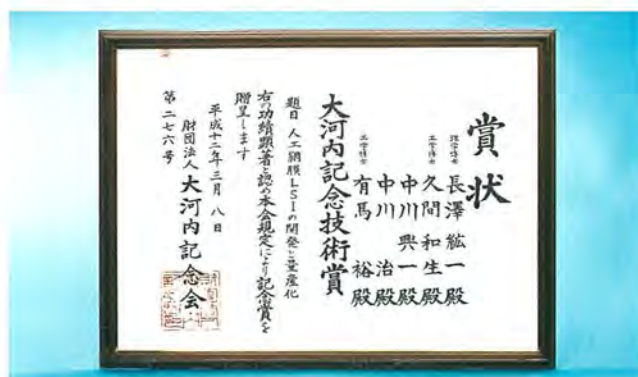 賞状
理学博士 長澤紘一殿
工学博士 久間和生殿
中川興一殿
中川治殿
工学博士 有馬裕殿
大河内記念技術賞
題目 人工網膜LSIの開発と量産化
右の功績顕著と認め本会規定により記念賞を
贈呈します
平成十二年三月八日
財団法人大河内記念会
第二七六号